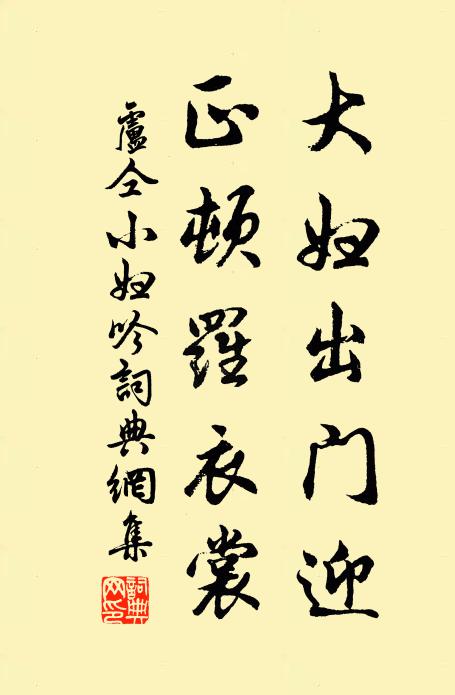 大妇出门迎
正顿罗衣裳
盧仝小妇吟詞典網集
詞典网印